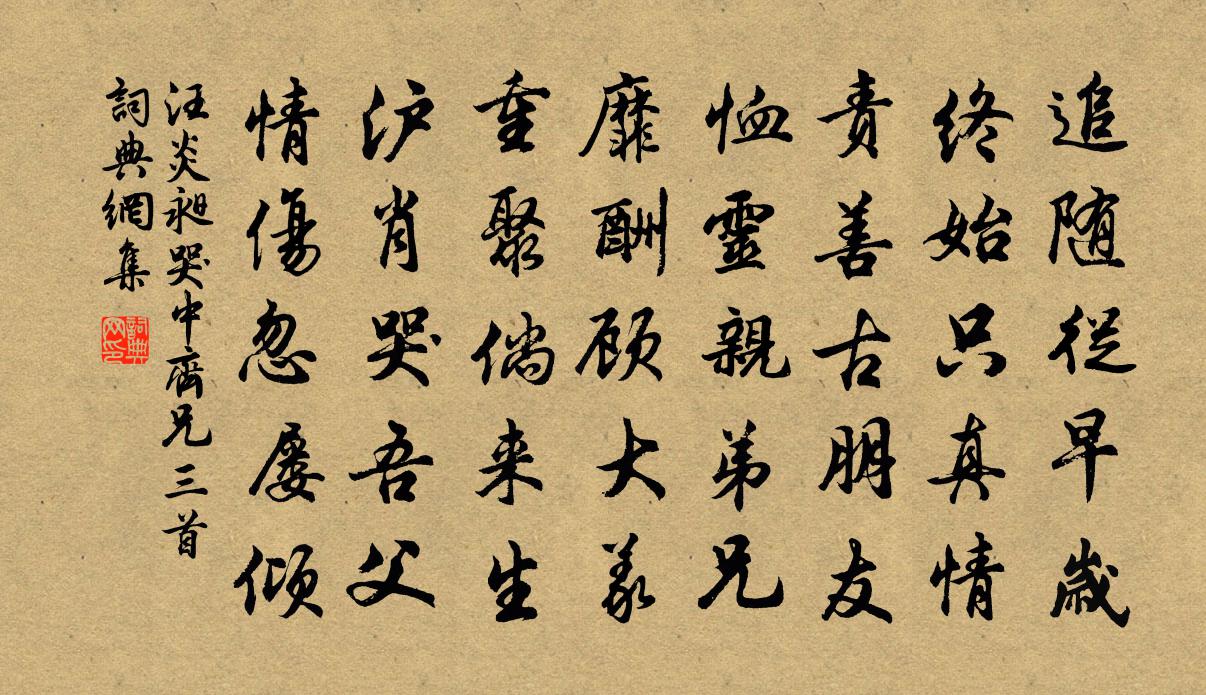 追随從早歲
终始只真情
责善古朋友
恤靈親弟兄
靡酬顾大義
重聚倘来生
沪肖哭吾父
情傷忽屡倾
汪炎昶哭中齊兄三首
詞典網集
詞典网印